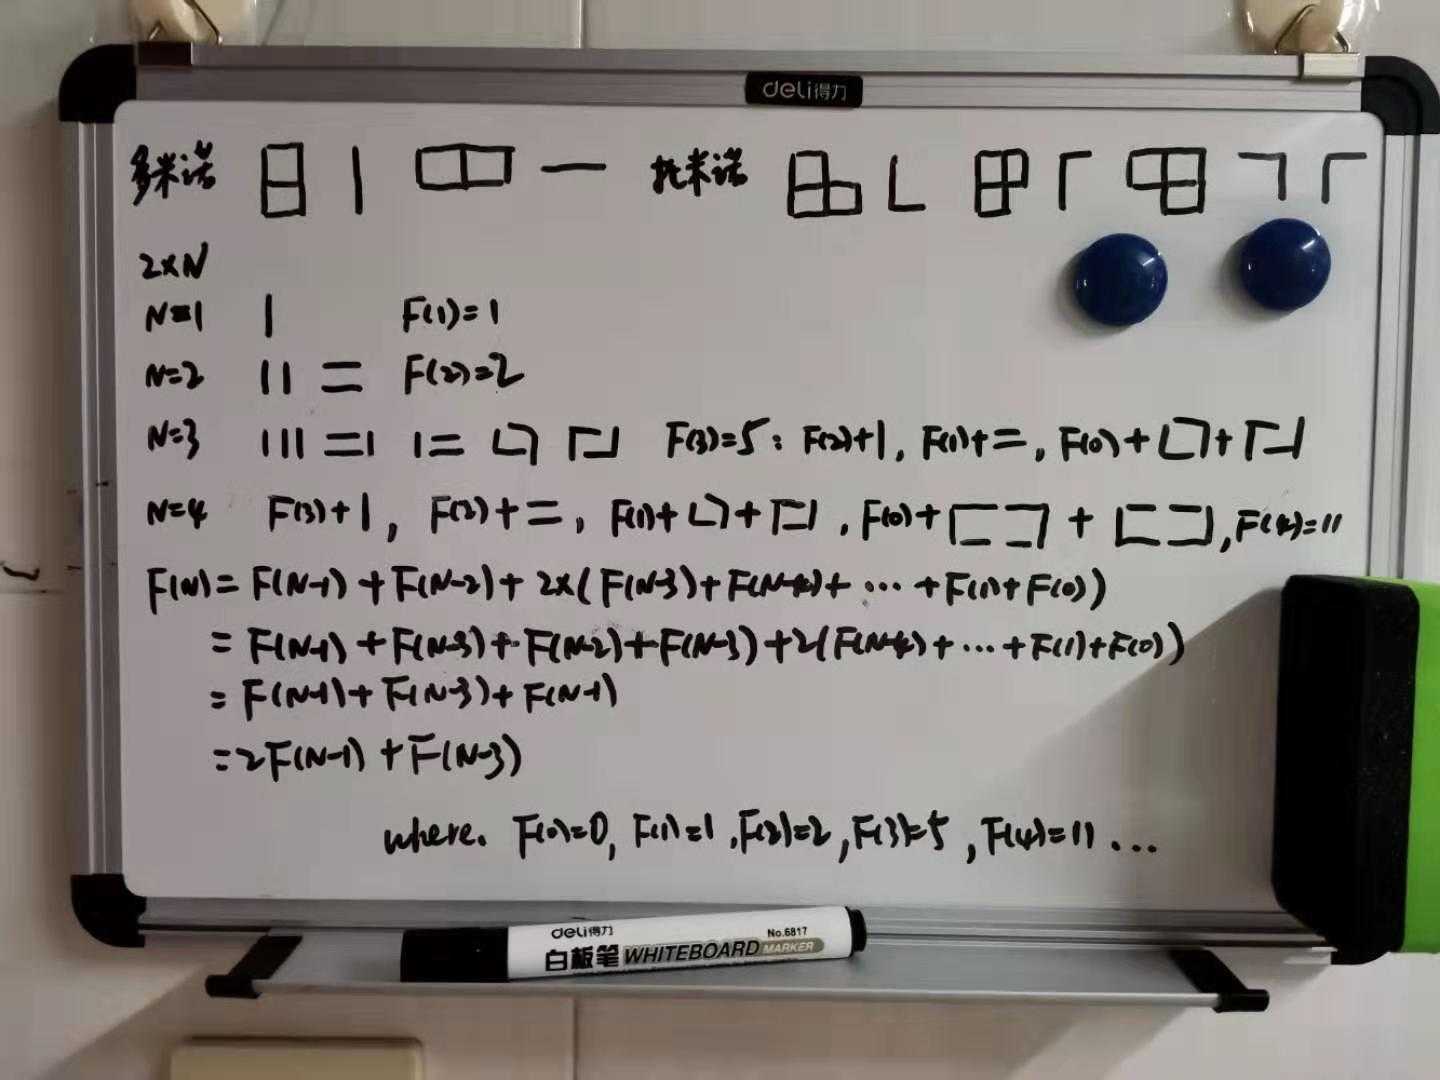 deli得力
多米诺 托米诺
2×N
N=1 F(1)=1
N=2 F(2)=2
N=3 F(3)=5: F(2)+|, F(1)+=, F(0)+ +
N=4 F(3)+|, F(2)+=, F(1)+ + , F(0)+ + , F(4)=11
F(N)=F(N-1)+F(N-2)+2×(F(N-3)+F(N-4)+…+F(1)+F(0))
=F(N-1)+F(N-3)+F(N-2)+F(N-3)+2(F(N-4)+…+F(1)+F(0))
=F(N-1)+F(N-3)+F(N-1)
=2F(N-1)+F(N-3)
where. F(0)=0, F(1)=1, F(2)=2, F(3)=5, F(4)=11…
deli得力 No.6817
白板笔 WHITEBOARD MARKER